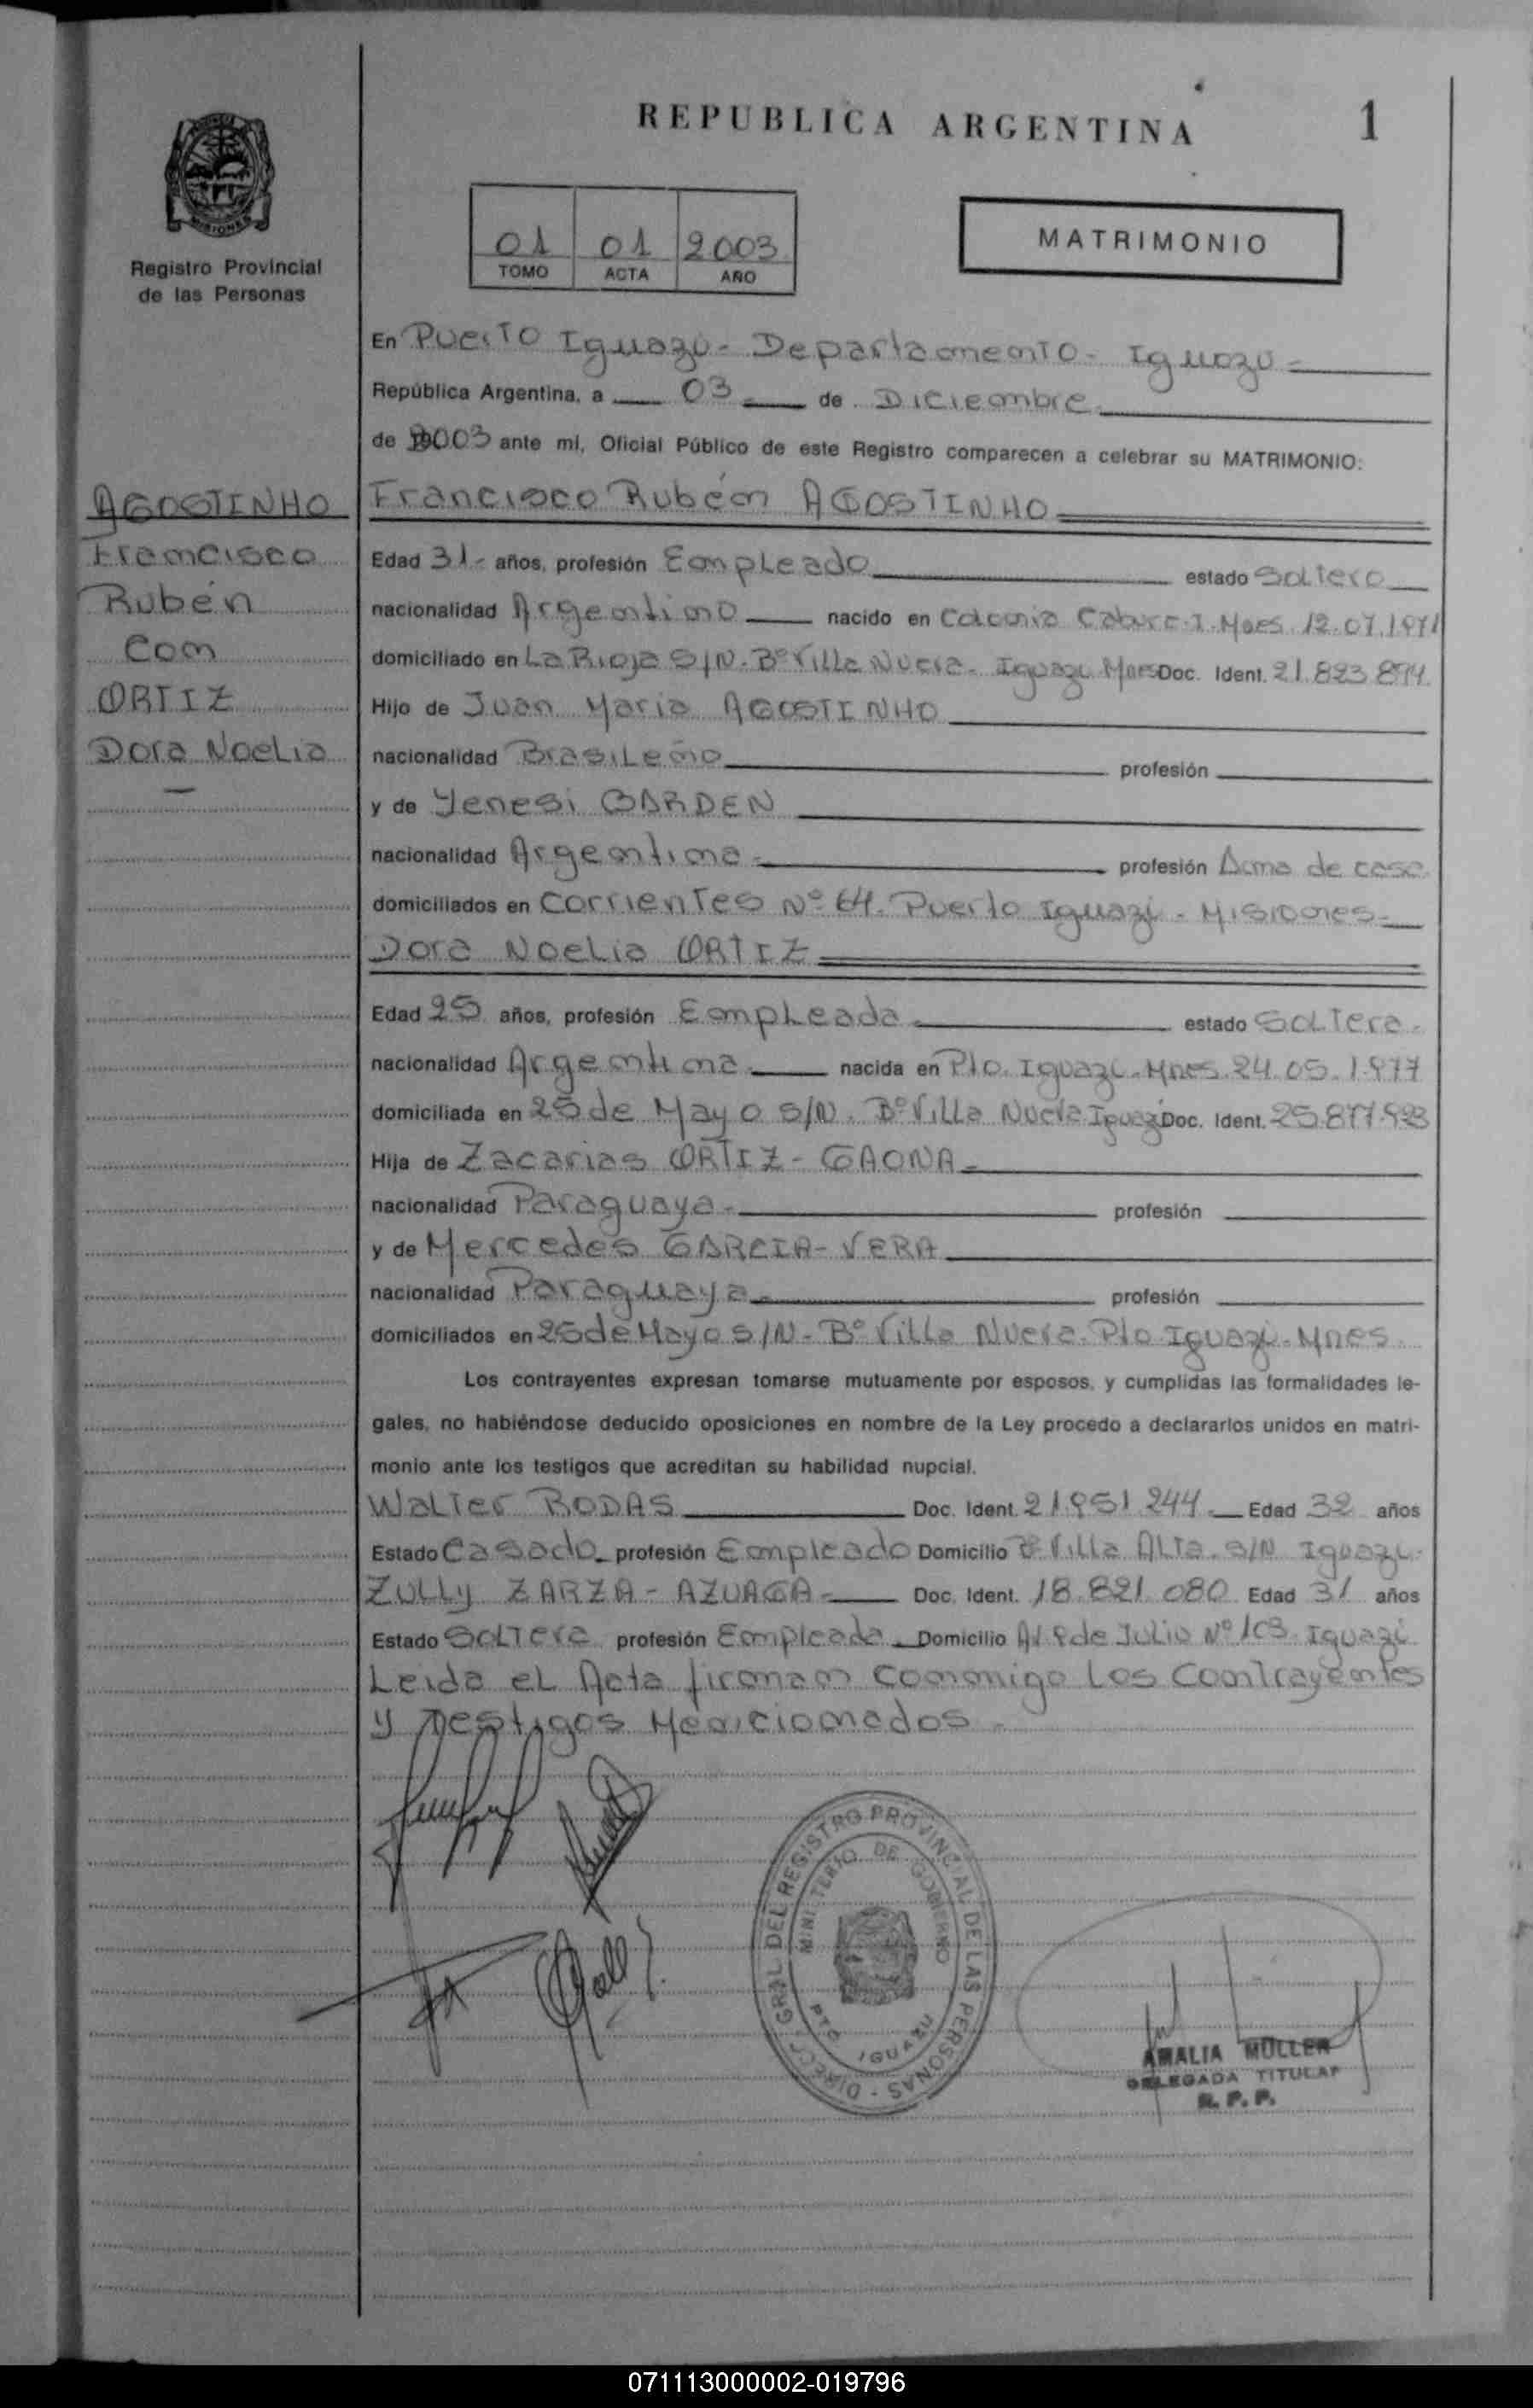 REPUBLICA ARGENTINA
1
MISIONES
Registro Provincial
de las Personas
01 01 2003
TOMO ACTA AÑO
MATRIMONIO
En Puerto Iguazú - Departamento - Iguazú
República Argentina, a 03 de Diciembre
de 2003 ante mí, Oficial Público de este Registro comparecen a celebrar su MATRIMONIO:
AGOSTINHO
Francisco
Rubén
Con
ORTIZ
Dora Noelia
Francisco Rubén AGOSTINHO
Edad 31 - años, profesión Empleado estado Soltero
nacionalidad Argentino nacido en Colonia Caburei. Mnes. 12.07.1971
domiciliado en La Rioja S/N. Bº Villa Nueva - Iguazú Mnes Doc. Ident. 21.823.894
Hijo de Juan Maria AGOSTINHO
nacionalidad Brasileño profesión
y de Yenesi BARDEN
nacionalidad Argentina profesión Ama de casa
domiciliados en Corrientes Nº 64. Puerto Iguazú - Misiones
Dora Noelia ORTIZ
Edad 25 años, profesión Empleada estado Soltera
nacionalidad Argentina nacida en Pto. Iguazú - Mnes. 24.05.1977
domiciliada en 25 de Mayo S/N. Bº Villa Nueva Iguazú Doc. Ident. 25.877.923
Hija de Zacarias ORTIZ - GAONA
nacionalidad Paraguaya profesión
y de Mercedes GARCIA - VERA
nacionalidad Paraguaya profesión
domiciliados en 25 de Mayo S/N - Bº Villa Nueva. Pto Iguazú - Mnes
Los contrayentes expresan tomarse mutuamente por esposos, y cumplidas las formalidades le-
gales, no habiéndose deducido oposiciones en nombre de la Ley procedo a declararlos unidos en matri-
monio ante los testigos que acreditan su habilidad nupcial.
Walter RODAS Doc. Ident. 21.951.244 Edad 32 años
Estado Casado profesión Empleado Domicilio Bº Villa Alta. S/N Iguazú
Zully ZARZA - AZUAGA Doc. Ident. 18.821.080 Edad 31 años
Estado Soltera profesión Empleada Domicilio Av 9 de Julio Nº 103 Iguazú
Leida el Acta firman conmigo los Contrayentes
y Testigos Mencionados
DIRECC. GRAL DEL REGISTRO PROVINCIAL DE LAS PERSONAS
MINISTERIO DE GOBIERNO
PTO IGUAZU
AMALIA MÜLLER
DELEGADA TITULAR
R. P. P.
071113000002-019796